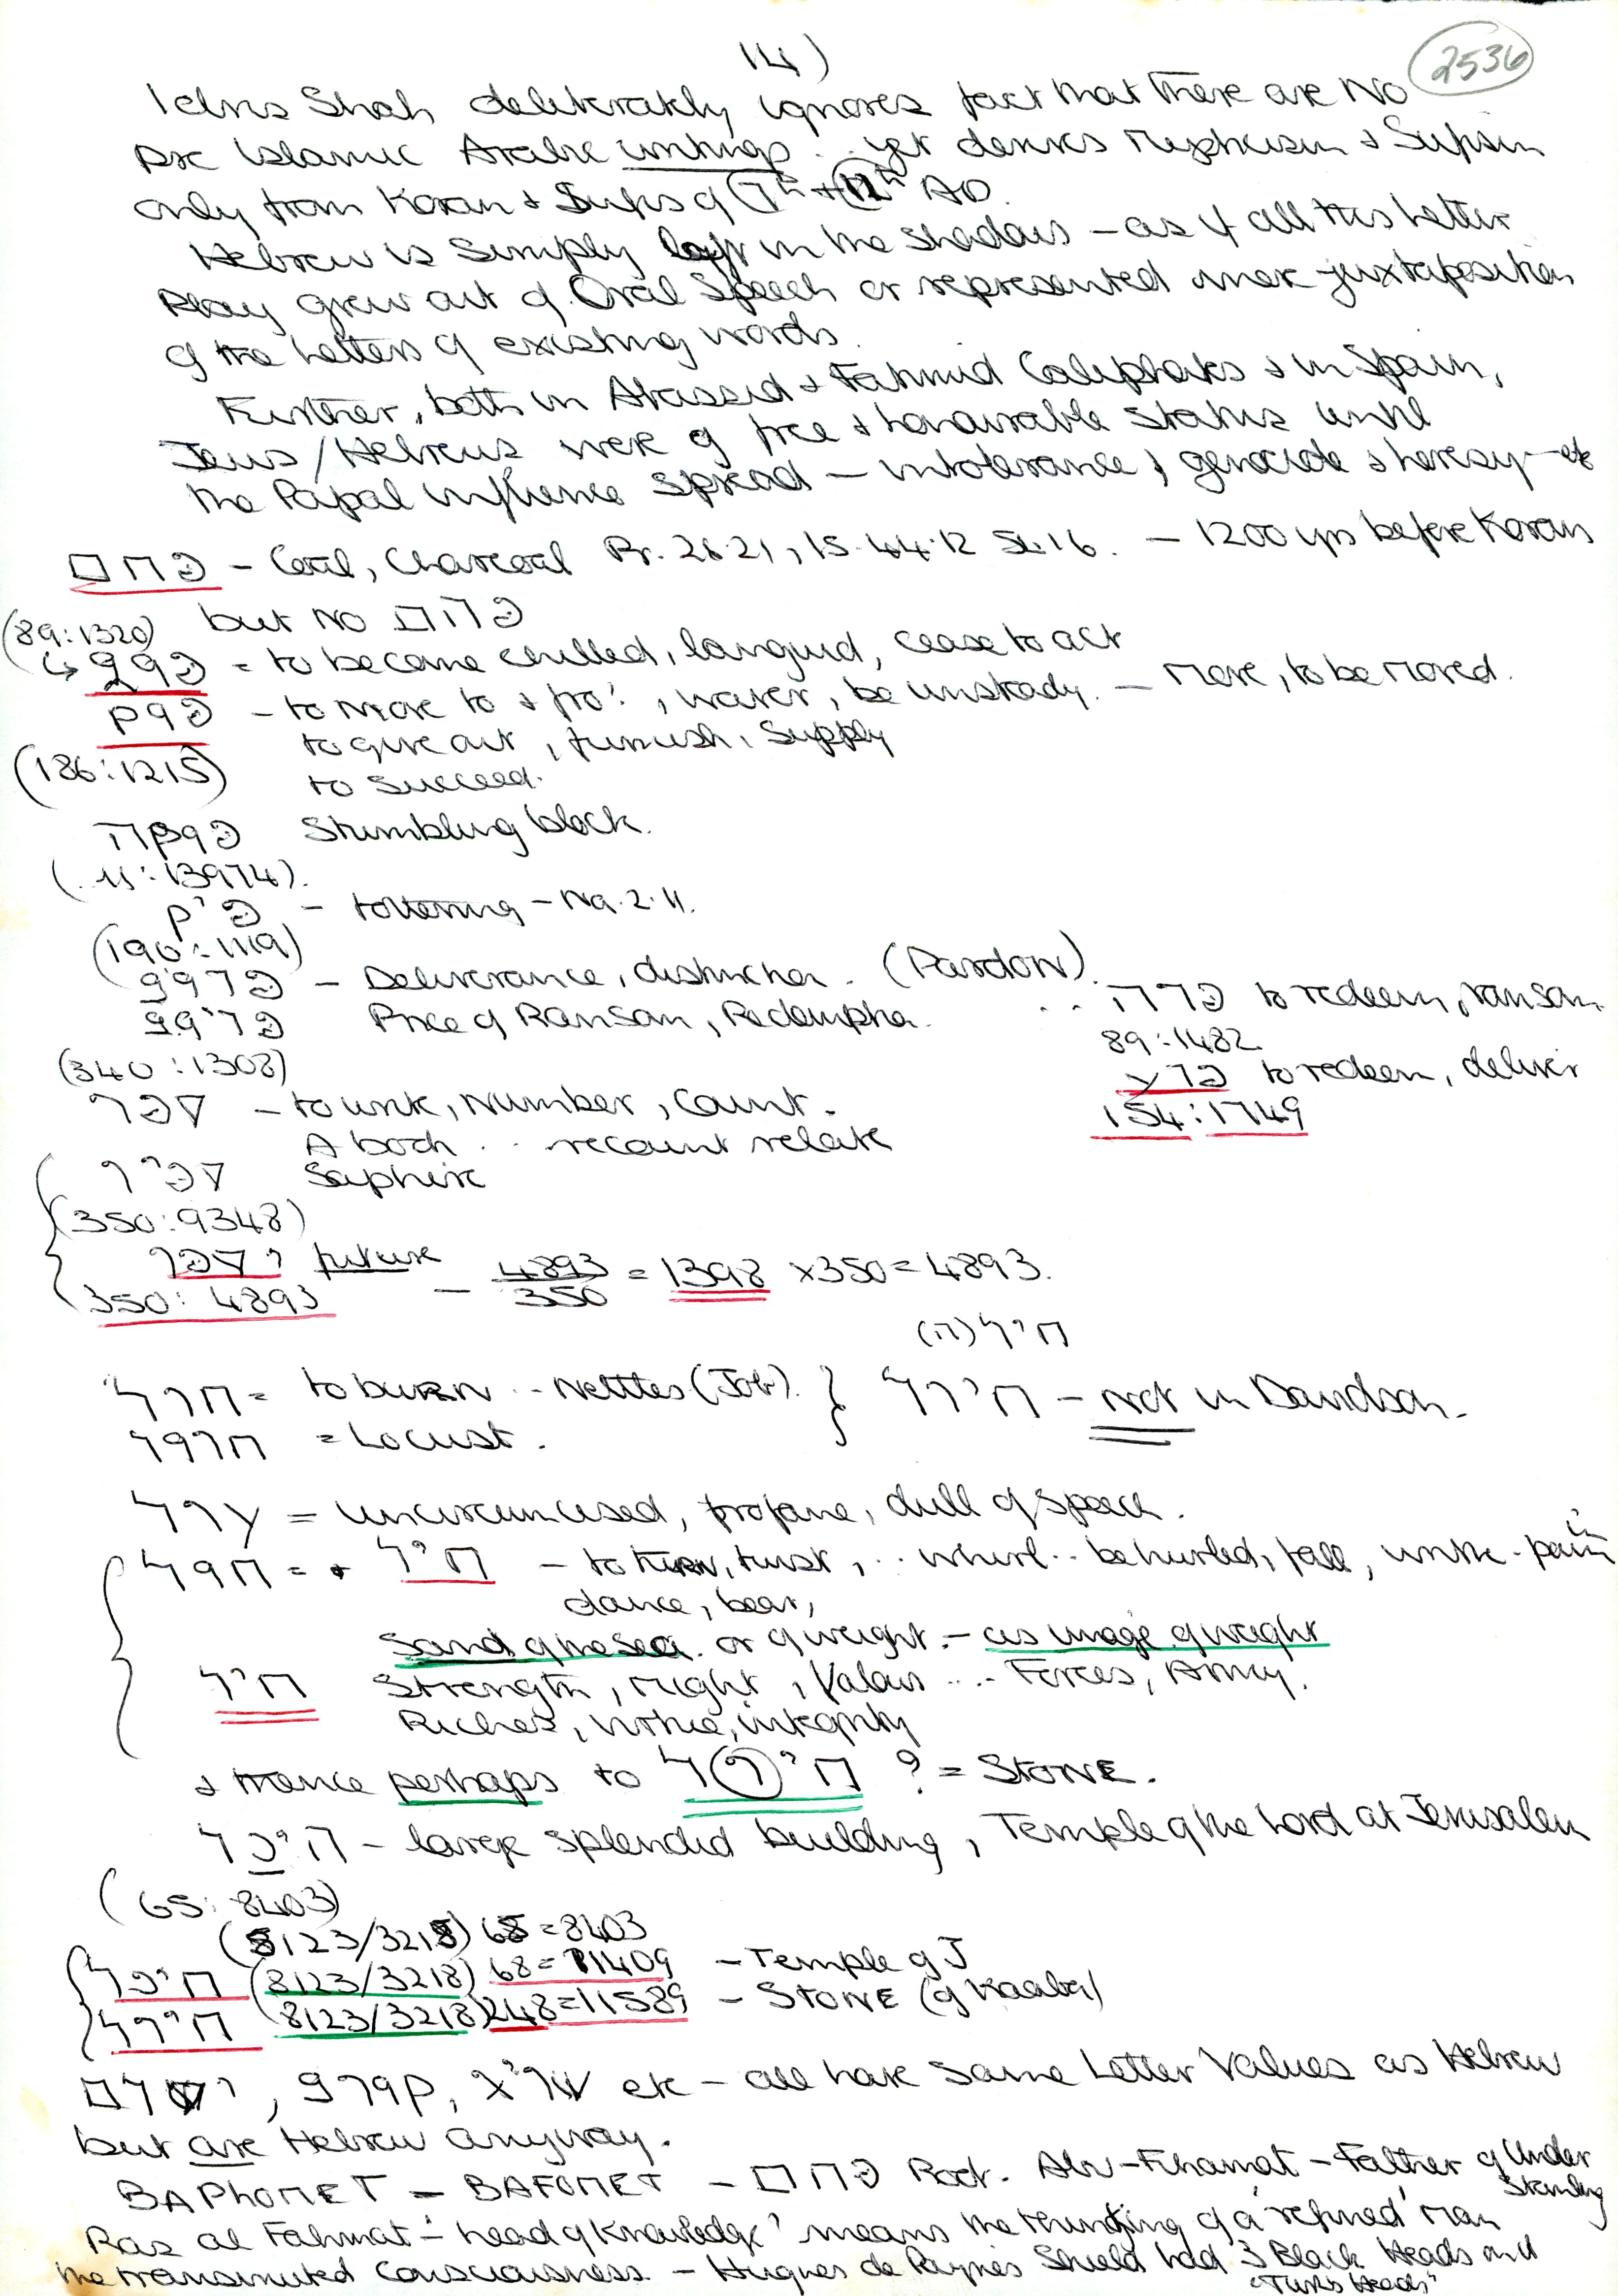 14)
2536
Idries Shah deliberately ignores fact that there are No
pre Islamic Arabic writings .. yet derives Mysticism & Sufism
only from Koran & Sufis of 7th + 12th AD.
Hebrew is simply left in the shadows – as if all this letter
play grew out of Oral Speech or represented mere juxtaposition
of the letters of existing words.
Further, both in Abassid & Fatimid Caliphates & in Spain,
Jews/Hebrews were of free & honourable status until
the Papal influence spread – intolerance, genocide & heresy – etc
פחם – Coal, Charcoal Pr. 26.21, Is. 44.12 54.16. – 1200 yrs before Koran
but No
(89:1320)
פוג = to become chilled, languid, cease to act
פוק – to move to & fro', waver, be unsteady. – move, to be moved.
to give out, furnish, supply
(186:1215)
to succeed.
פוקה Stumbling block.
(:13974).
פיק – tottering – Na. 2.11.
(190:1119)
– Deliverance, distinction. (Pardon).
Price of Ransom, Redemption.
.. פדה to redeem, ransom
89:1482
פדע to redeem, deliver
154:1749
(340:1308)
ספר – to write, number, count.
A book .. recount relate
ספיר Saphire
(350:9348)
יספר future
350:4893 – 4893/350 = 1398 ×350 = 4893.
(ה) חיל
חרל = to burn .. – Nettles (Job). } חירל – not in Davidson.
= Locust.
ערל = uncircumcised, profane, dull of speech.
חול = & חיל – to turn, twist, .. whirl .. be hurled, fall, writhe – in pain
dance, bear,
Sand of the sea. or of weight. – as image of weight
חיל Strength, might, Valour ... Forces, Army.
Riches, virtue, integrity
& thence perhaps to חי(ר)ל ? = STONE.
היכל – large splendid building, Temple of the Lord at Jerusalem
(65:8403)
(8123/3218) 65 = 8403
(8123/3218) 68 = 11409 – Temple of J
חירל (8123/3218) 248 = 11589 – STONE (of Kaaba)
etc – all have same Letter Values as Hebrew
but are Hebrew anyway.
BAPhOMET – BAFOMET – פחם Root. Abu-Fihamat – Father of Under
standing
Ras al Fahmat – 'head of Knowledge' means the thinking of a 'refined' man
the transmuted consciousness. – Hugues de Payne's Shield had 3 Black Heads and
"Turks Heads"